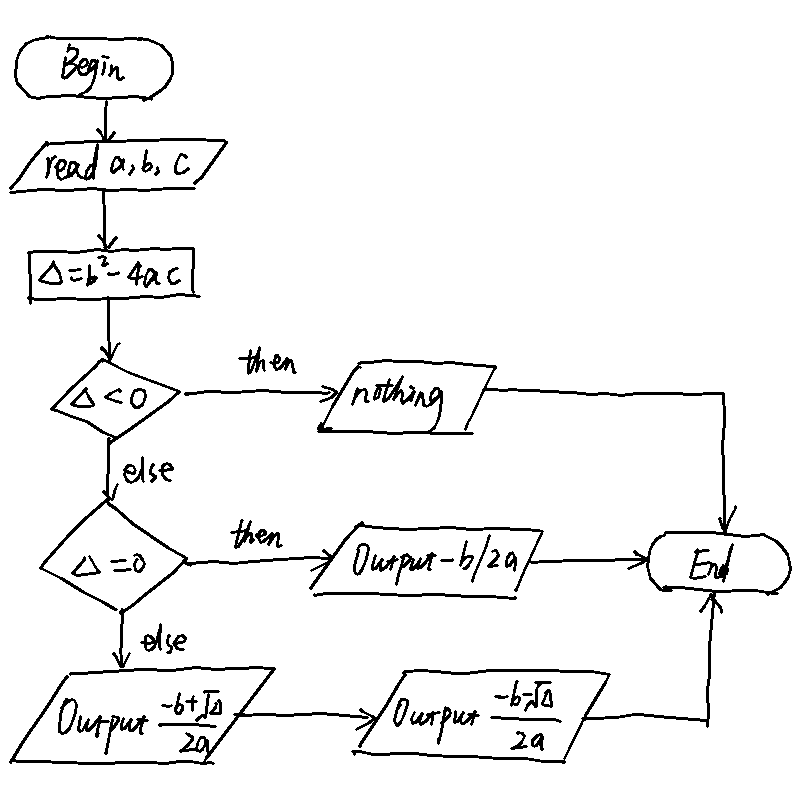 Begin
read a, b, c
Δ=b²-4ac
then
Δ<0
nothing
else
then
Δ=0
Output -b/2a
End
else
Output (-b+√Δ)/2a
Output (-b-√Δ)/2a